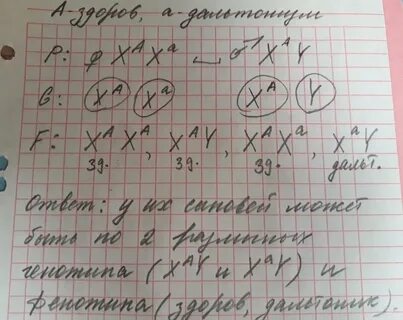 А-здоров, а-дальтонизм
Р: ♀ X^A X^a ♂ X^A Y
G: X^A X^a X^A Y
F: X^A X^A, X^A Y, X^A X^a, X^a Y
зд. зд. зд. дальт.
Ответ: у их сыновей может
быть по 2 различных
генотипа (X^A Y и X^a Y) и
фенотипа (здоров, дальтоник).